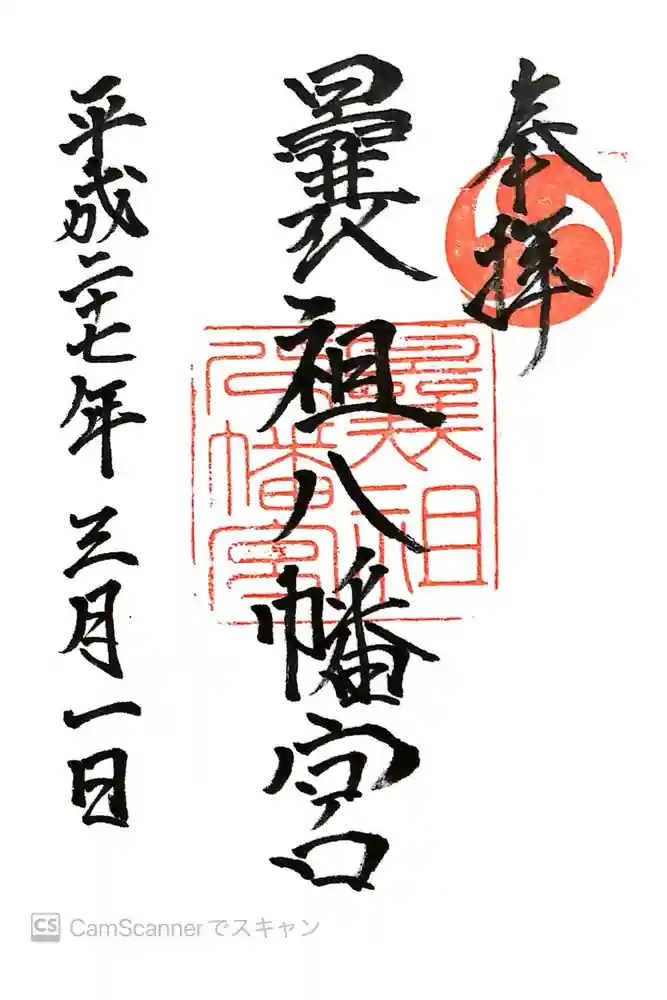 奉拝
曩祖八幡宮
平成二十七年三月一日
曩祖
八幡宮
CS CamScannerでスキャン